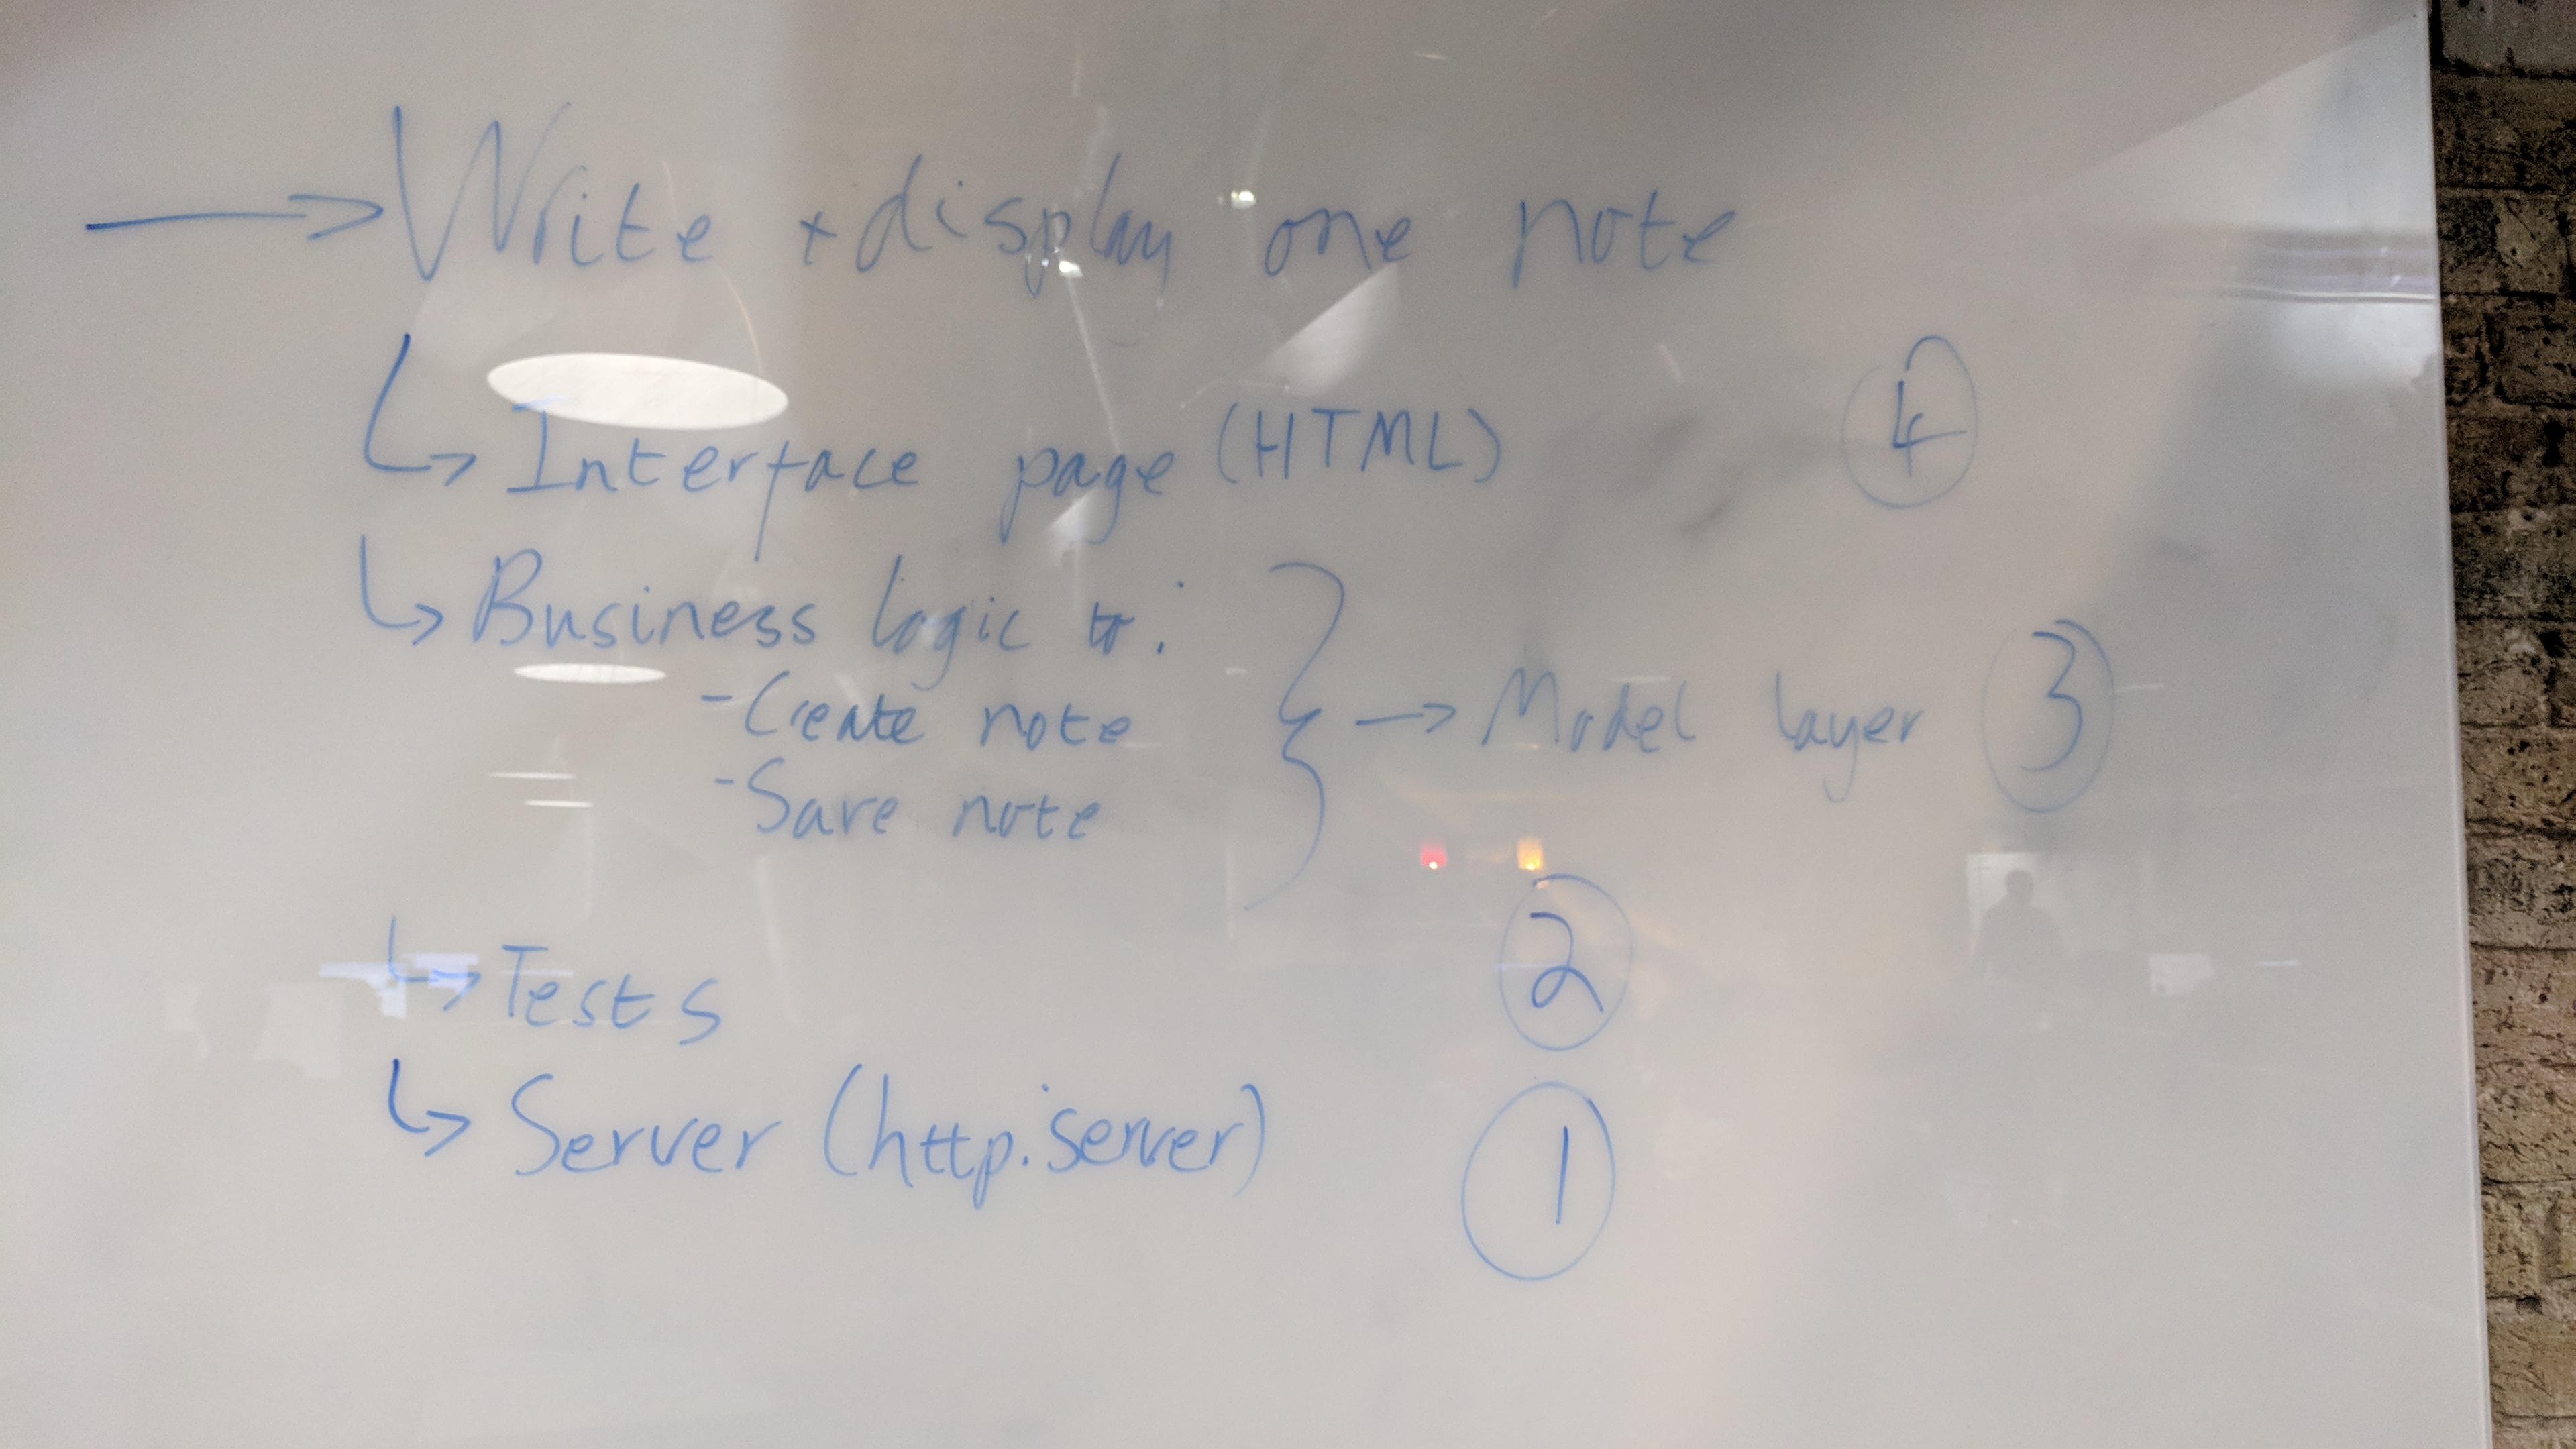 → Write + display one note
↳ Interface page (HTML) 4
↳ Business logic to:
- Create note
- Save note
} → Model layer 3
↳ Tests 2
↳ Server (http.server) 1